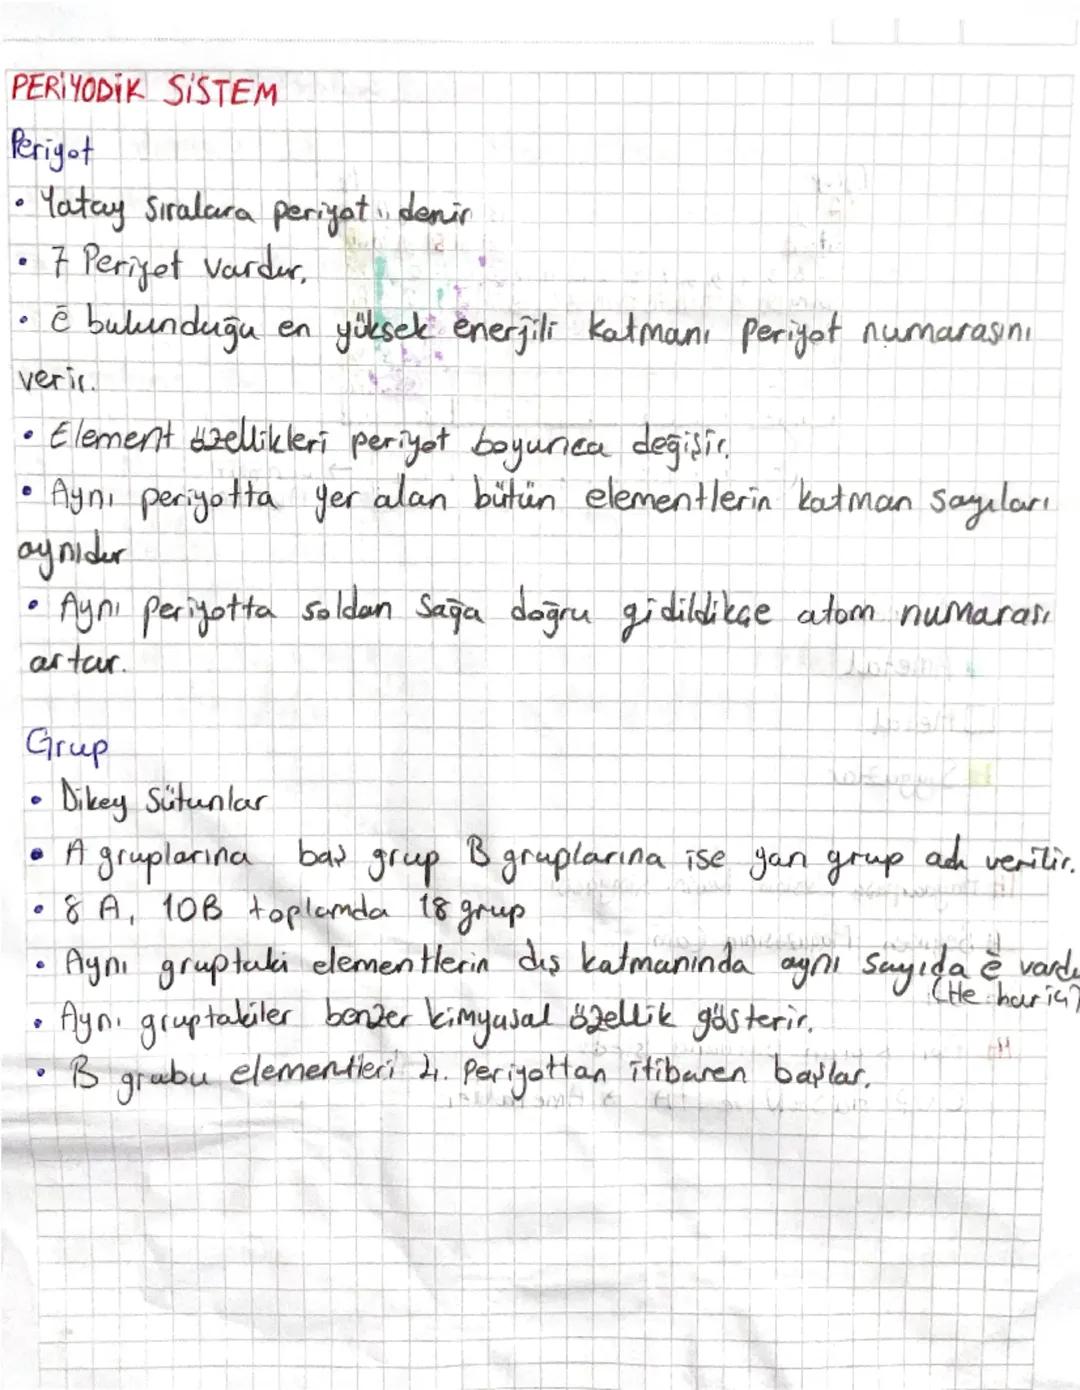 PERİYODİK SİSTEM
Periyot
• Yatay sıralara periyot denir
• 7 Periyot vardır.
• ē bulunduğu en yüksek enerjili katmanı periyot numarasını
verir.
• Element özellikleri periyot boyunca değişir.
• Aynı periyotta yer alan bütün elementlerin katman sayıları
aynıdır
• Aynı periyotta soldan sağa doğru gidildikçe atom numarası
artar.
Grup
• Dikey Sütunlar
• A gruplarına baş grup B gruplarına ise yan grup adı verilir.
• 8 A, 10B toplamda 18 grup
• Aynı gruptaki elementlerin dış katmanında aynı sayıda ē vardı
(He hariç)
• Aynı gruptakiler benzer kimyasal özellik gösterir.
• B grubu elementleri 4. Periyottan itibaren başlar.